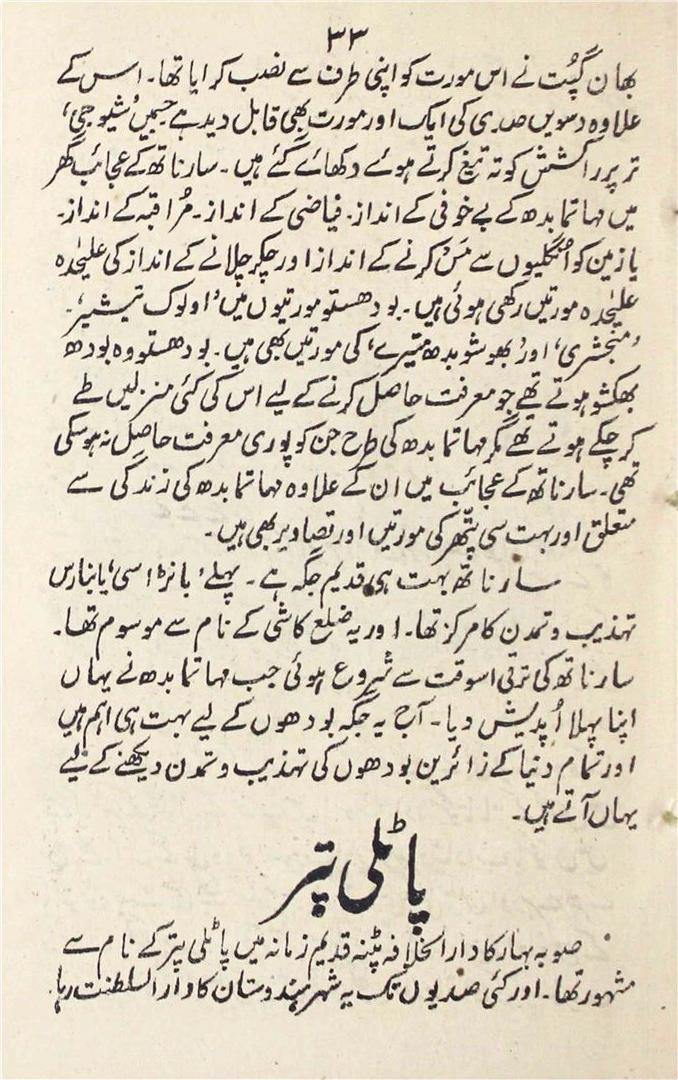 ۳۳
بھان گپُت نے اس مورت کو اپنی طرف سے نصب کرایا تھا۔ اس کے
علاوہ دسویں صدی کی ایک اور مورت بھی قابل دید ہے جسمیں ’شیوجی‘
ترپرراکشش کو تہ تیغ کرتے ہوئے دکھائے گئے ہیں۔ سارناتھ کے عجائب گھر
میں مہاتما بدھ کے بے خوفی کے انداز۔ فیاضی کے انداز۔ مُراقبہ کے انداز۔
یا زمین کو انگلیوں سے مَس کرنے کے انداز اور چکر چلانے کے انداز کی علیٰحدہ
علیٰحدہ مورتیں رکھی ہوئی ہیں۔ بودھستو مورتیوں میں ’اولوک تیشیر‘۔
’منجشری‘ اور ’بھوشو بدھ میترے‘ کی مورتیں بھی ہیں۔ بودھستو وہ بودھ
بھکشو ہوتے تھے جو معرفت حاصل کرنے کے لیے اس کی کئی منزلیں طے
کر چکے ہوتے تھے مگر مہاتما بدھ کی طرح جن کو پوری معرفت حاصل نہ ہو سکی
تھی۔ سارناتھ کے عجائب میں ان کے علاوہ مہاتما بدھ کی زندگی سے
متعلق اور بہت سی پتّھر کی مورتیں اور تصاویر بھی ہیں۔
سارناتھ بہت ہی قدیم جگہ ہے۔ پہلے ’بانڑاسی‘ یا بنارس
تہذیب و تمدن کا مرکز تھا۔ اور یہ ضلع کاشی کے نام سے موسوم تھا۔
سارناتھ کی ترقی اسوقت سے شروع ہوئی جب مہاتما بدھ نے یہاں
اپنا پہلا اُپدیش دیا۔ آج یہ جگہ بودھوں کے لیے بہت ہی اہم ہیں
اور تمام دنیا کے زائرین بودھوں کی تہذیب و تمدن دیکھنے کے لیے
یہاں آتے ہیں۔
پاٹلی پتر
صوبہ بہار کا دارالخلافہ پٹنہ قدیم زمانہ میں پاٹلی پتر کے نام سے
مشہور تھا۔ اور کئی صدیوں تک یہ شہر ہندوستان کا دارالسلطنت رہا۔